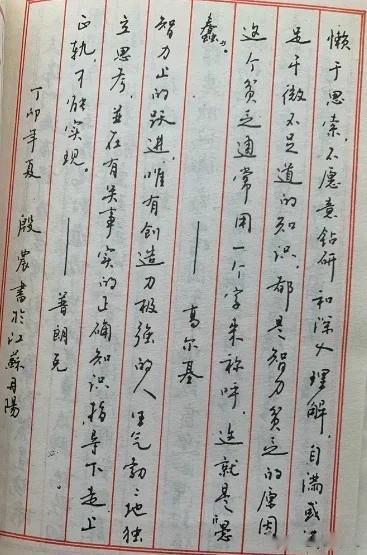 懒于思索，不愿意钻研和深入理解，自满或
足于微不足道的知识，都是智力贫乏的原因
这个贫乏通常用一个字来称呼，这就是“愚
蠢”。
——高尔基
智力上的跃进，唯有创造力极强的人生气勃勃地独
立思考，并在有关事实的正确知识指导下走上
正轨，才能实现。
——普朗克
丁卯年夏 殷農書於江蘇丹陽